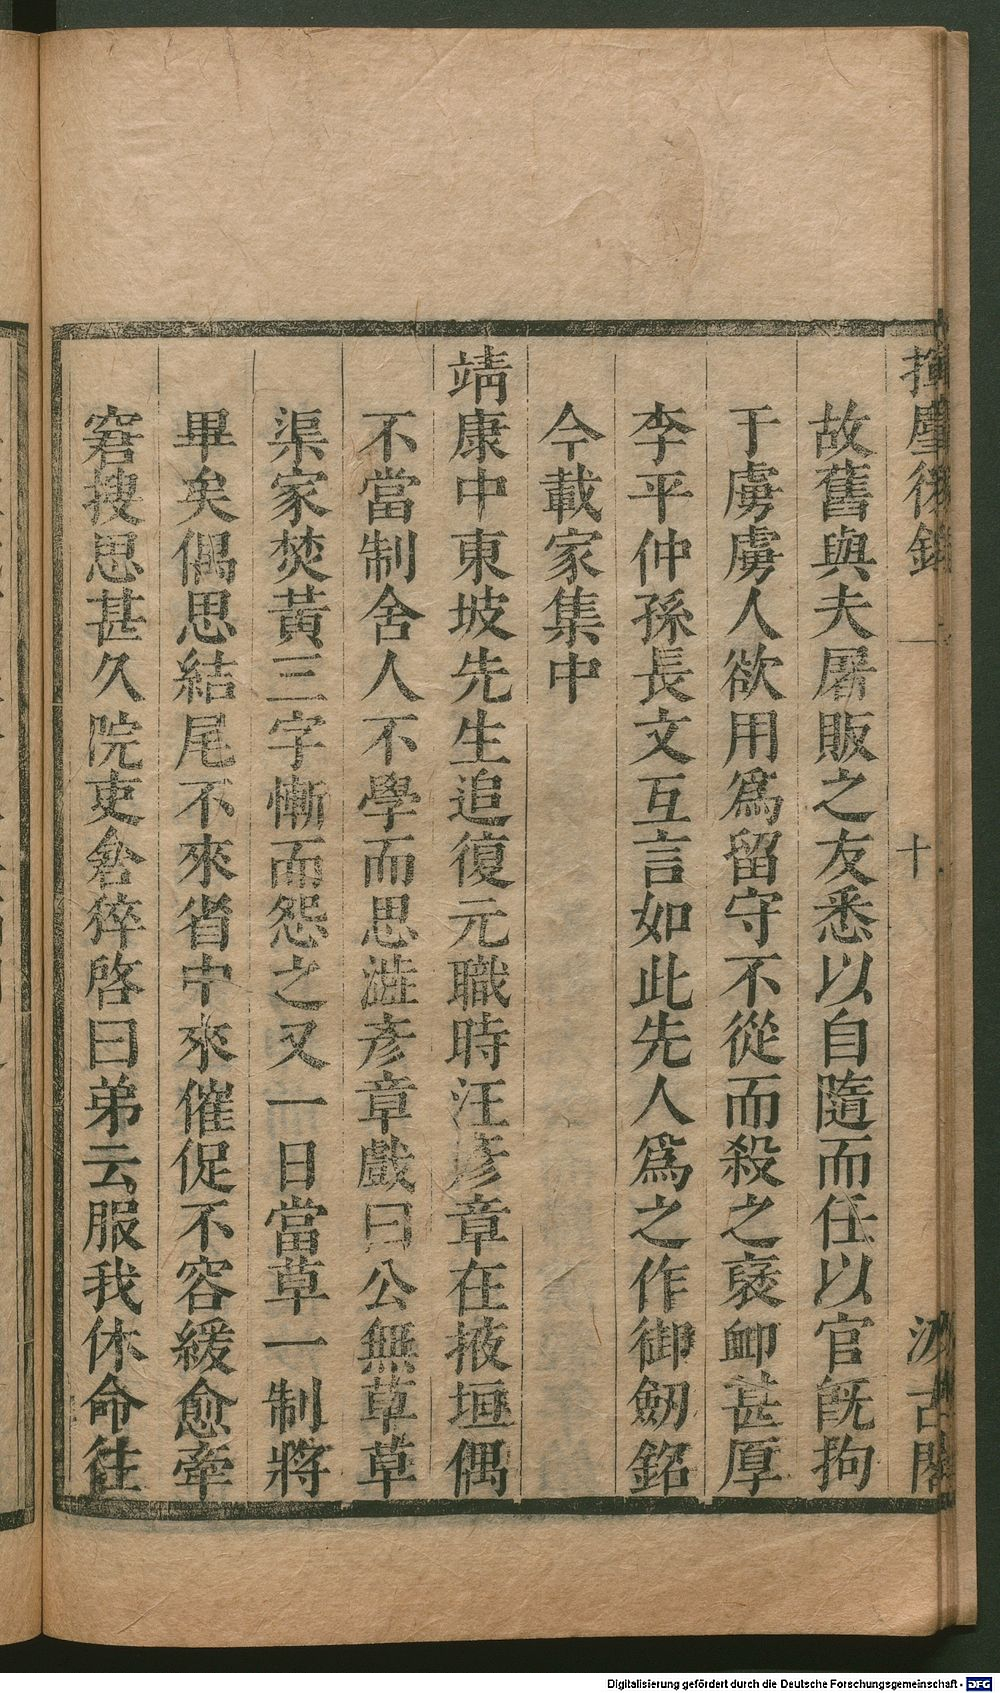 揮麈後錄 一 十 汲古閣
故舊與夫屠販之友悉以自隨而任以官旣拘
于虜虜人欲用爲留守不從而殺之褒卹甚厚
李平仲孫長文互言如此先人爲之作御劒銘
今載家集中
靖康中東坡先生追復元職時汪彥章在掖垣偶
不當制舍人不學而思澁彥章戲曰公無草草
渠家焚黃三字慚而怨之又一日當草一制將
畢矣偶思結尾不來省中來催促不容緩愈牽
窘搜思甚久院吏倉猝啓曰弟云服我休命往
Digitalisierung gefördert durch die Deutsche Forschungsgemeinschaft - DFG